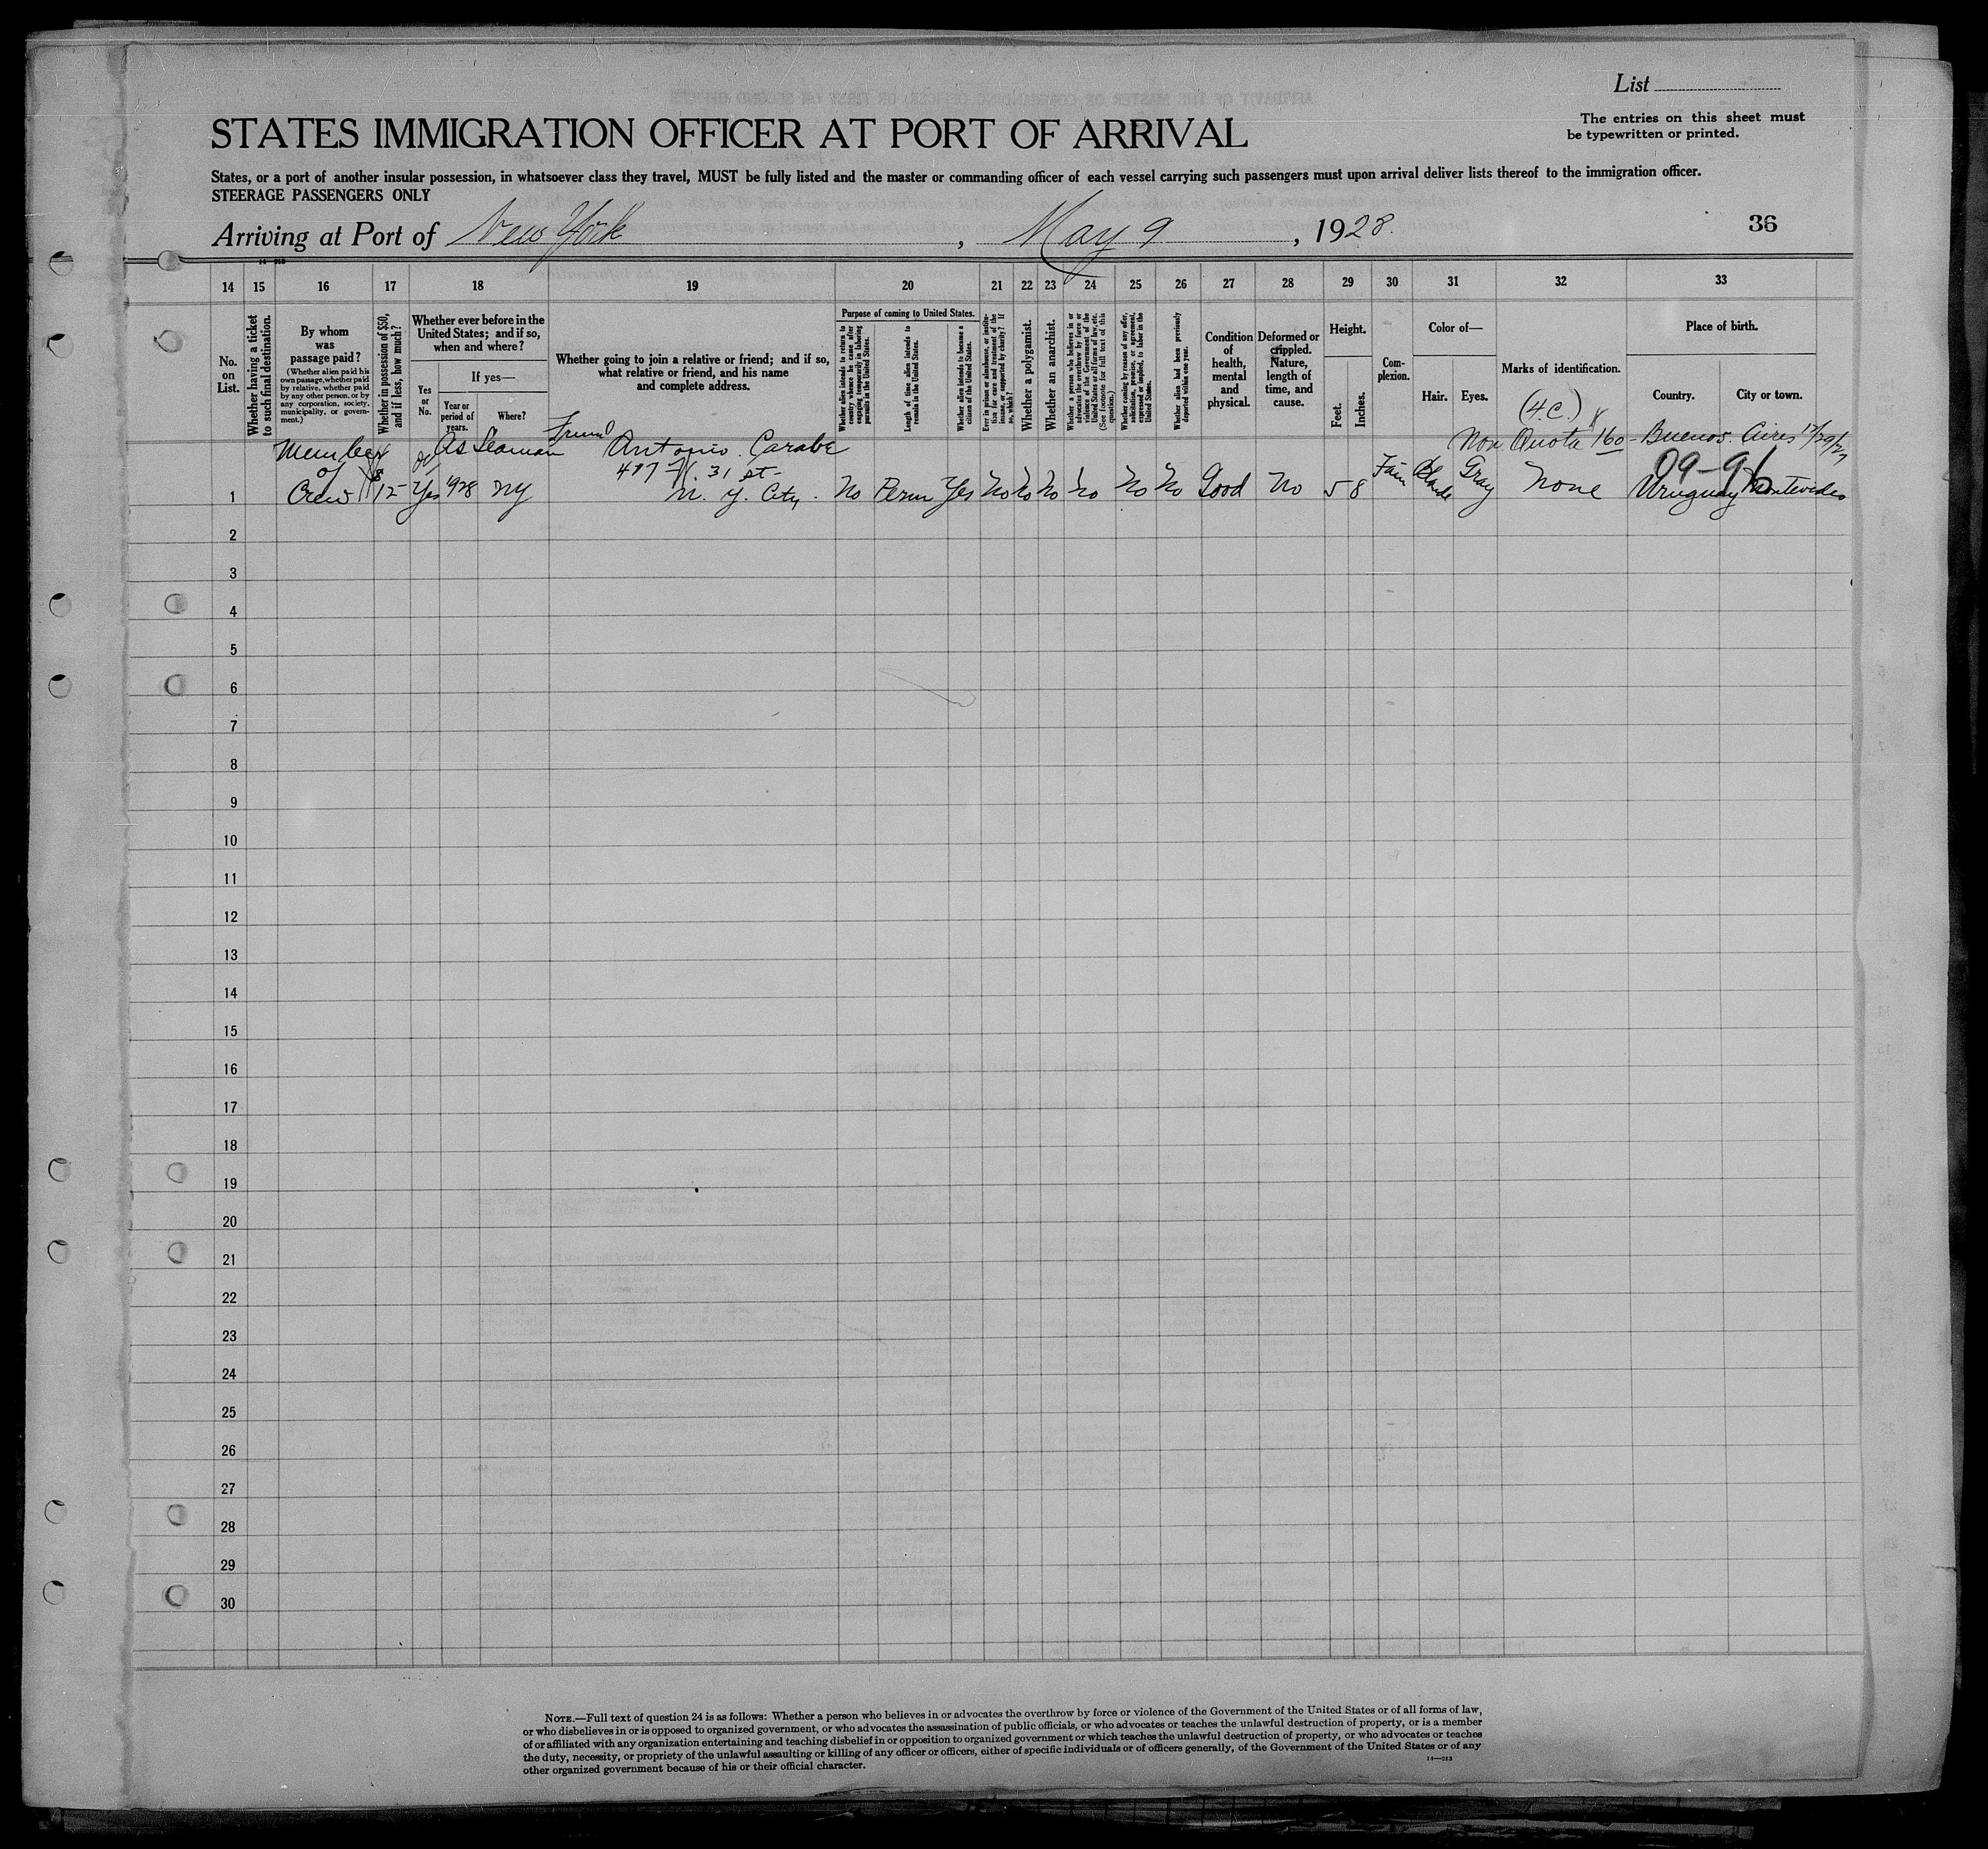 List
The entries on this sheet must
be typewritten or printed.
STATES IMMIGRATION OFFICER AT PORT OF ARRIVAL
States, or a port of another insular possession, in whatsoever class they travel, MUST be fully listed and the master or commanding officer of each vessel carrying such passengers must upon arrival deliver lists thereof to the immigration officer.
STEERAGE PASSENGERS ONLY
Arriving at Port of New York, May 9, 1928.
36
14 15 16 17 18 19 20 21 22 23 24 25 26 27 28 29 30 31 32 33
No.
on
List.
Whether having a ticket
to such final destination.
By whom
was
passage paid?
(Whether alien paid his
own passage, whether paid
by relative, whether paid
by any other person, or by
any corporation, society,
municipality, or govern-
ment.)
Whether in possession of $50,
and if less, how much?
Whether ever before in the
United States; and if so,
when and where?
If yes—
Yes
or
No.
Year or
period of
years.
Where?
Whether going to join a relative or friend; and if so,
what relative or friend, and his name
and complete address.
Purpose of coming to United States.
Whether alien intends to return to
country whence he came after
engaging temporarily in laboring
pursuits in the United States.
Length of time alien intends to
remain in the United States.
Whether alien intends to become a
citizen of the United States.
Ever in prison or almshouse, or institu-
tion for care and treatment of the
insane, or supported by charity? If
so, which?
Whether a polygamist.
Whether an anarchist.
Whether a person who believes in or
advocates the overthrow by force or
violence of the Government of the
United States or all forms of law, etc.
(See footnote for full text of this
question.)
Whether coming by reason of any offer,
solicitation, promise, or agreement,
expressed or implied, to labor in the
United States.
Whether alien had been previously
deported within one year.
Condition
of
health,
mental
and
physical.
Deformed or
crippled.
Nature,
length of
time, and
cause.
Height.
Feet.
Inches.
Com-
plexion.
Color of—
Hair.
Eyes.
Marks of identification.
Place of birth.
Country.
City or town.
(4C.)
Member As Seaman Friend Antonio Carabe Non Quota 160 - Buenos Aires 12/29/27
of 31 st 09-96
1 Crew 12- Yes 1928 NY N. Y. City. No Perm Yes No No No No No No Good No 5 8 Fair Blonde Gray None Uruguay Montevideo
2
3
4
5
6
7
8
9
10
11
12
13
14
15
16
17
18
19
20
21
22
23
24
25
26
27
28
29
30
NOTE.—Full text of question 24 is as follows: Whether a person who believes in or advocates the overthrow by force or violence of the Government of the United States or of all forms of law,
or who disbelieves in or is opposed to organized government, or who advocates the assassination of public officials, or who advocates or teaches the unlawful destruction of property, or is a member
of or affiliated with any organization entertaining and teaching disbelief in or opposition to organized government or which teaches the unlawful destruction of property, or who advocates or teaches
the duty, necessity, or propriety of the unlawful assaulting or killing of any officer or officers, either of specific individuals or of officers generally, of the Government of the United States or of any
other organized government because of his or their official character.
14—213